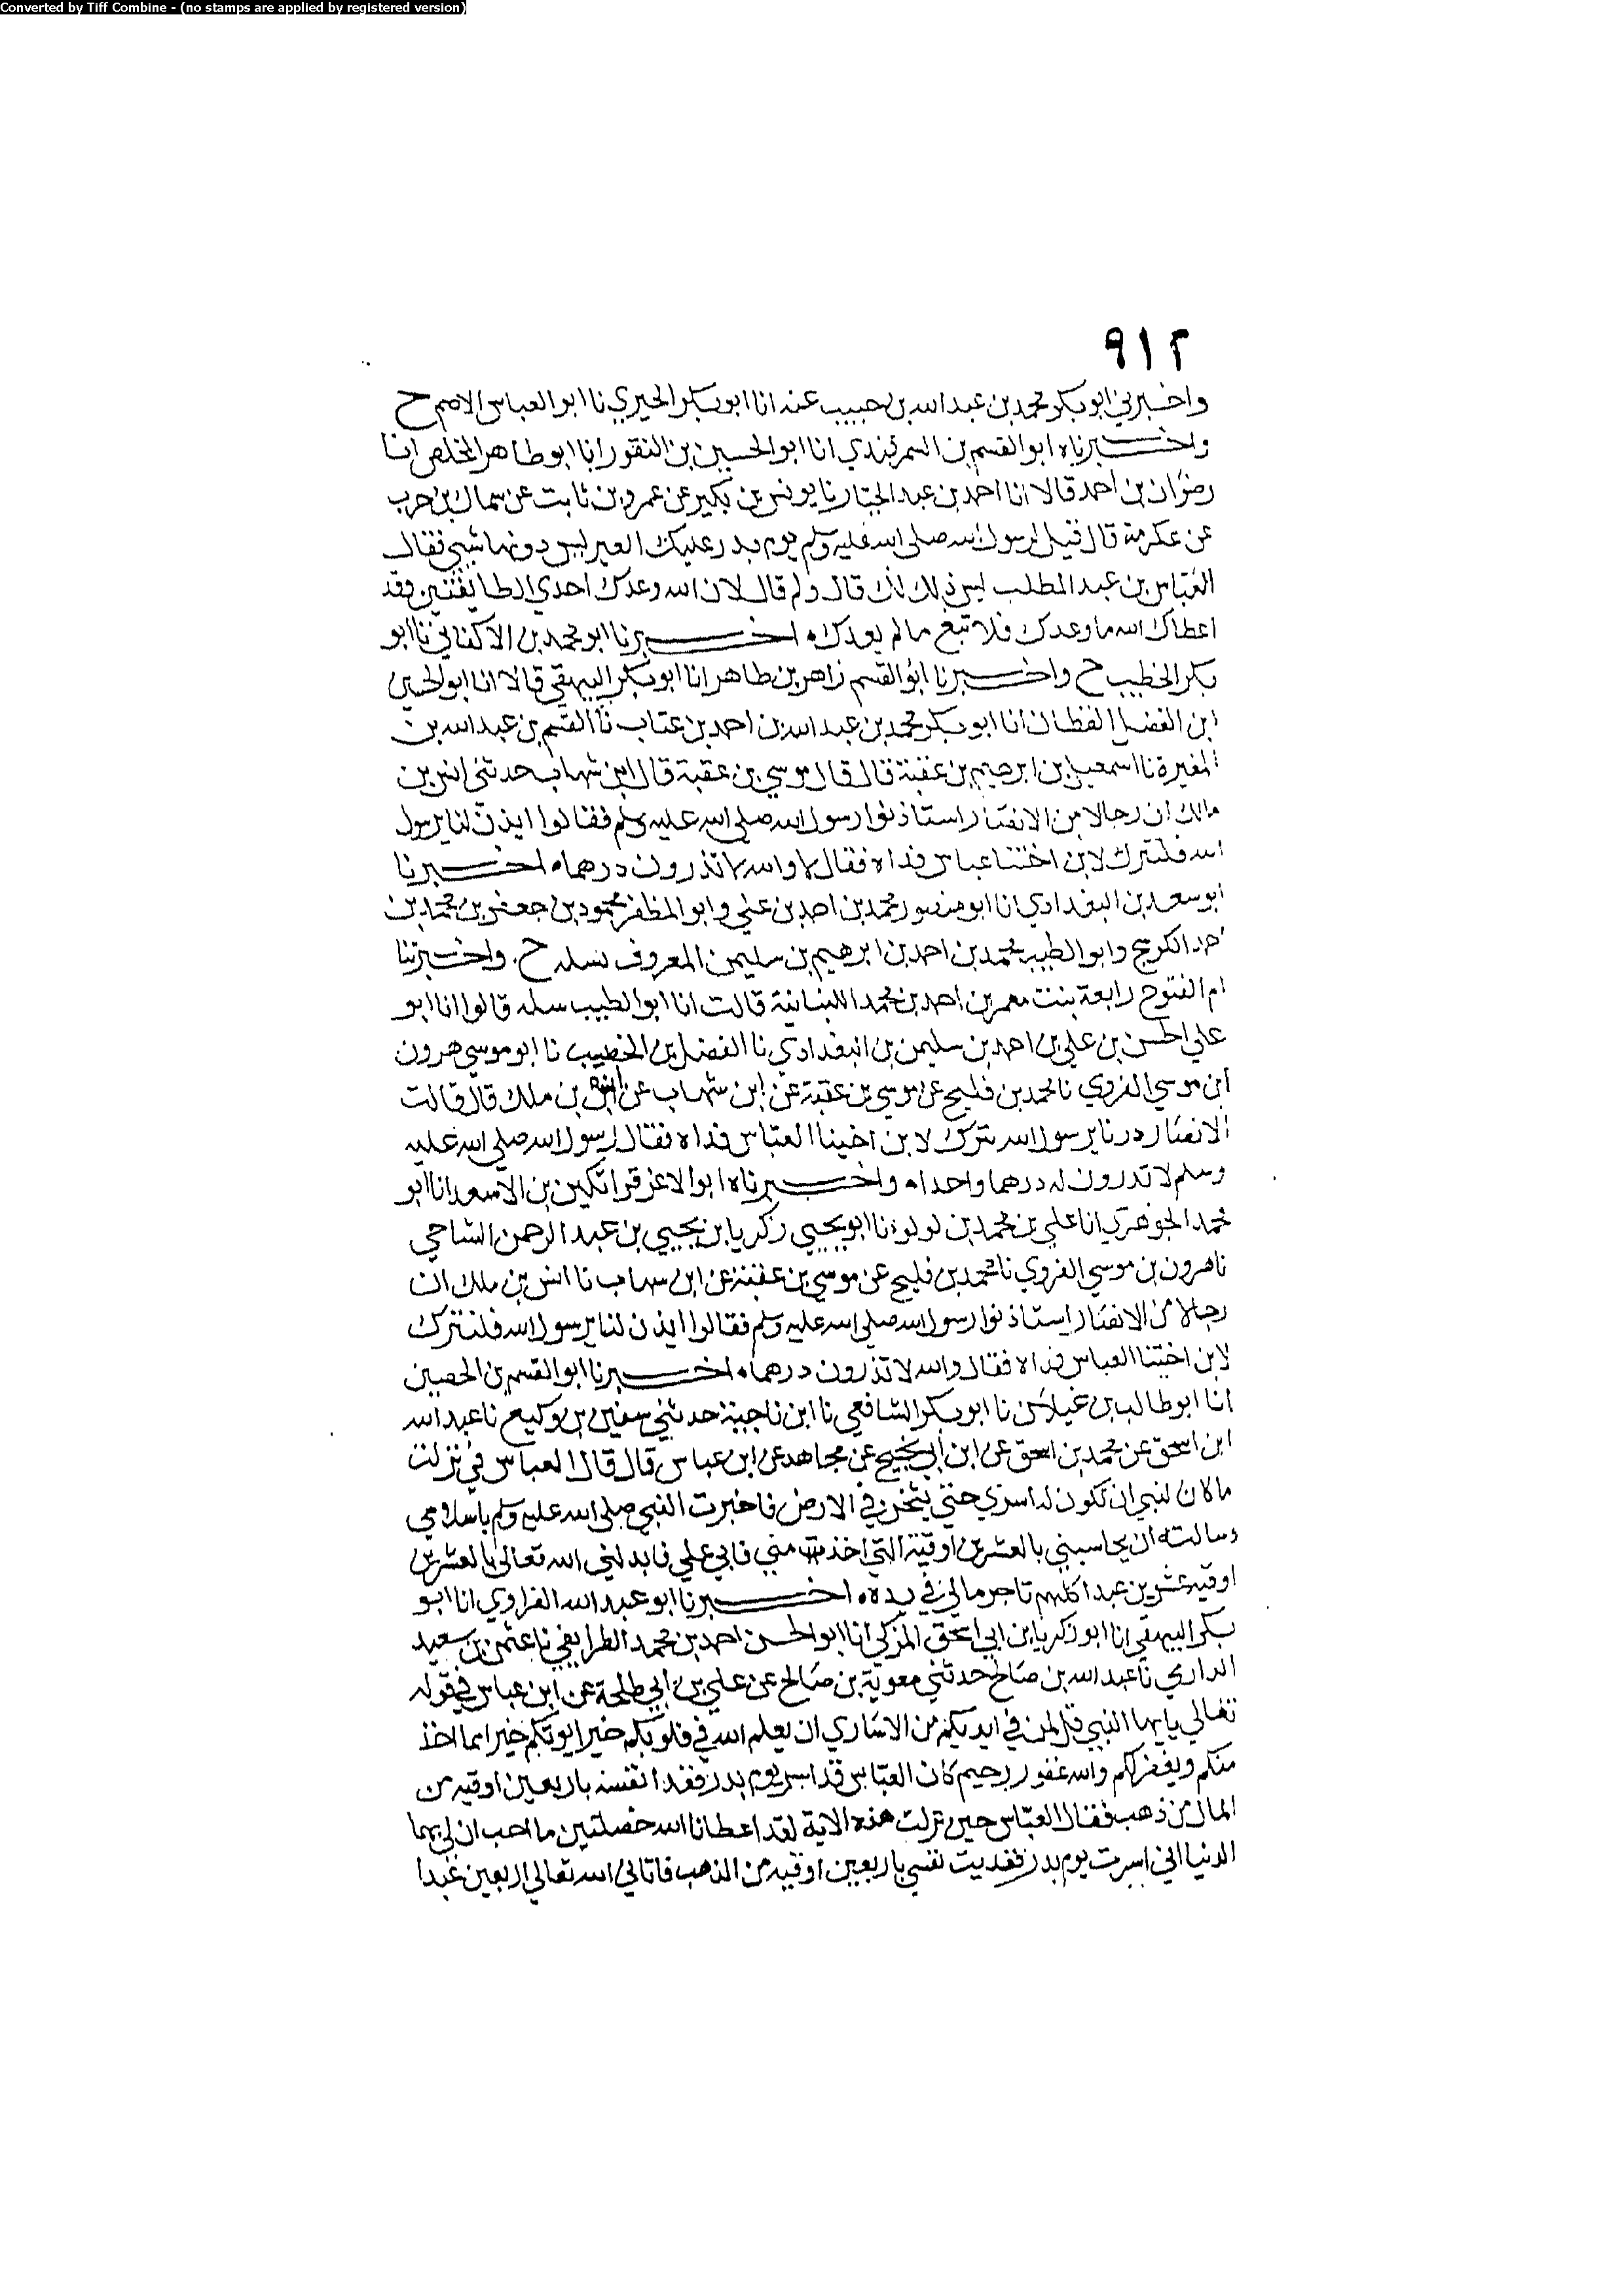 Converted by Tiff Combine - (no stamps are applied by registered version)
٩١٢
واخبرني ابو بكر محمد بن عبد الله بن حبيب عنه انا ابو بكر الحيري نا ابو العباس الاصم ح
واخبرناه ابو القسم بن السمرقندي انا ابو الحسين بن النقور انا ابو طاهر المخلص انا
رضوان بن احمد قالا انا احمد بن عبد الجبار نا يونس بن بكير عن عمرو بن ثابت عن سماك بن حرب
عن عكرمة قال قيل لرسول الله صلى الله عليه وسلم يوم بدر عليك العير ليس دونها شيي فقال
العباس بن عبد المطلب ليس ذلك لك قال ولم قال لان الله وعدك احدي الطايفتين وقد
اعطاك الله ما وعدك فلا تبع مالم يعدك ه اخبرنا ابو محمد بن الاكفاني نا ابو
بكر الخطيب ح واخبرنا ابو القسم زاهر بن طاهر انا ابو بكر البيهقي قالا انا ابو الحسين
ابن الفضل القطان انا ابو بكر محمد بن عبد الله بن احمد بن عتاب نا القسم بن عبد الله بن
المغيرة نا اسمعيل بن ابرهيم بن عقبة قال قال موسي بن عقبة قال ابن شهاب حدثني انس بن
مالك ان رجالا من الانصار استاذنوا رسول الله صلى الله عليه وسلم فقالوا ايذن لنا يرسول
الله فلنترك لابن اختنا عباس فداه فقال لا والله لا تذرون درهما ه اخبرنا
ابو سعد بن البغدادي انا ابو منصور محمد بن احمد بن علي وابو المظفر محمود بن جعفر بن محمد بن
احمد الكوسج وابو الطيب محمد بن احمد بن ابرهيم بن سليمن المعروف بسله ح. واخبرتنا
ام الفتوح رابعة بنت معمر بن احمد بن محمد اللبنانية قالت انا ابو الطيب سله قالوا انا ابو
علي الحسن بن علي بن احمد بن سليمن بن البغدادي نا الفضل بن الخصيب نا ابو موسي هرون
ابن موسي الفروي نا محمد بن فليح عن موسي بن عقبة عن ابن شهاب عن انس بن ملك قال قالت
الانصار درنا يرسول الله نترك لابن اخينا العباس فداه فقال رسول الله صلى الله عليه
وسلم لا تدرون له درهما واحدا ه واخبرناه ابو الاعز قراتكين بن الاسعد انا ابو
محمد الجوهري انا علي بن محمد بن لولو نا ابو يحيي زكريا بن يحيي بن عبد الرحمن الساجي
نا هرون بن موسي الفروي نا محمد بن فليح عن موسي بن عقبة عن ابن سهاب نا انس بن ملك ان
رجالا من الانصار استاذنوا رسول الله صلى الله عليه وسلم فقالوا ايذن لنا يرسول الله فلنترك
لابن اختنا العباس فداه فقال والله لا تذرون درهما ه اخبرنا ابو القسم بن الحصين
انا ابو طالب بن غيلان نا ابو بكر الشافعي نا ابن ناجية حدثني سفين بن وكيع نا عبد الله
ابن اسحق عن محمد بن اسحق عن ابن ابي نجيح عن مجاهد عن ابن عباس قال قال العباس في نزلت
ما كان لنبي ان تكون له اسري حتي يثخن في الارض فاخبرت النبي صلى الله عليه وسلم باسلامي
وسالته ان يحاسبني بالعشرين اوقية التي اخذت مني فابي علي فابدلني الله تعالى بالعشرين
اوقيه عشرين عبدا كلهم تاجر مالي في يده ه اخبرنا ابو عبد الله الفراوي انا ابو
بكر البيهقي انا ابو زكريا بن ابي اسحق المزكي انا ابو الحسن احمد بن محمد الطرايفي نا عثمن بن سعيد
الدارمي نا عبد الله بن صالح حدثني معوية بن صالح عن علي بن ابي طلحة عن ابن عباس في قوله
تعالي يايها النبي قل لمن في ايديكم من الاساري ان يعلم الله في قلوبكم خيرا يوتكم خيرا مما اخذ
منكم ويغفر لكم والله غفور رحيم كان العباس قد اسر يوم بدر ففدا نفسه باربعين اوقيه من
المال من ذهب فقال العباس حين نزلت هذه الاية لقد اعطانا الله خصلتين ما احب ان لي بهما
الدنيا اني اسرت يوم بدر ففديت نفسي باربعين اوقيه من الذهب فاتاني الله تعالي اربعين عبدا